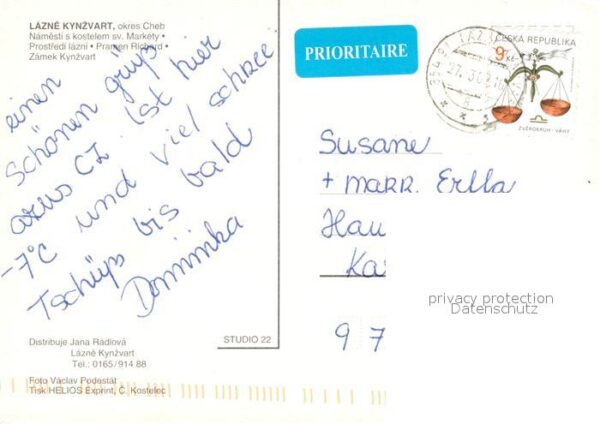 LÁZNĚ KYNŽVART, okres Cheb
Náměstí s kostelem sv. Markéty •
Prostředí lázní • Pramen Richard •
Zámek Kynžvart
einen
schönen grüß
aus CZ. Ist hier
-7°C und viel schnee.
Tschüß bis bald
Dominika
Distribuje Jana Rádlová
Lázně Kynžvart
Tel.: 0165/914 88
Foto Václav Podestát
Tisk HELIOS Exprint, Č. Kostelec
STUDIO 22
PRIORITAIRE
ČESKÁ REPUBLIKA
9 Kč
ZVĚROKRUH - VÁHY
Susane
+ marr. Erlla
Hau
Ka
97
privacy protection
Datenschutz